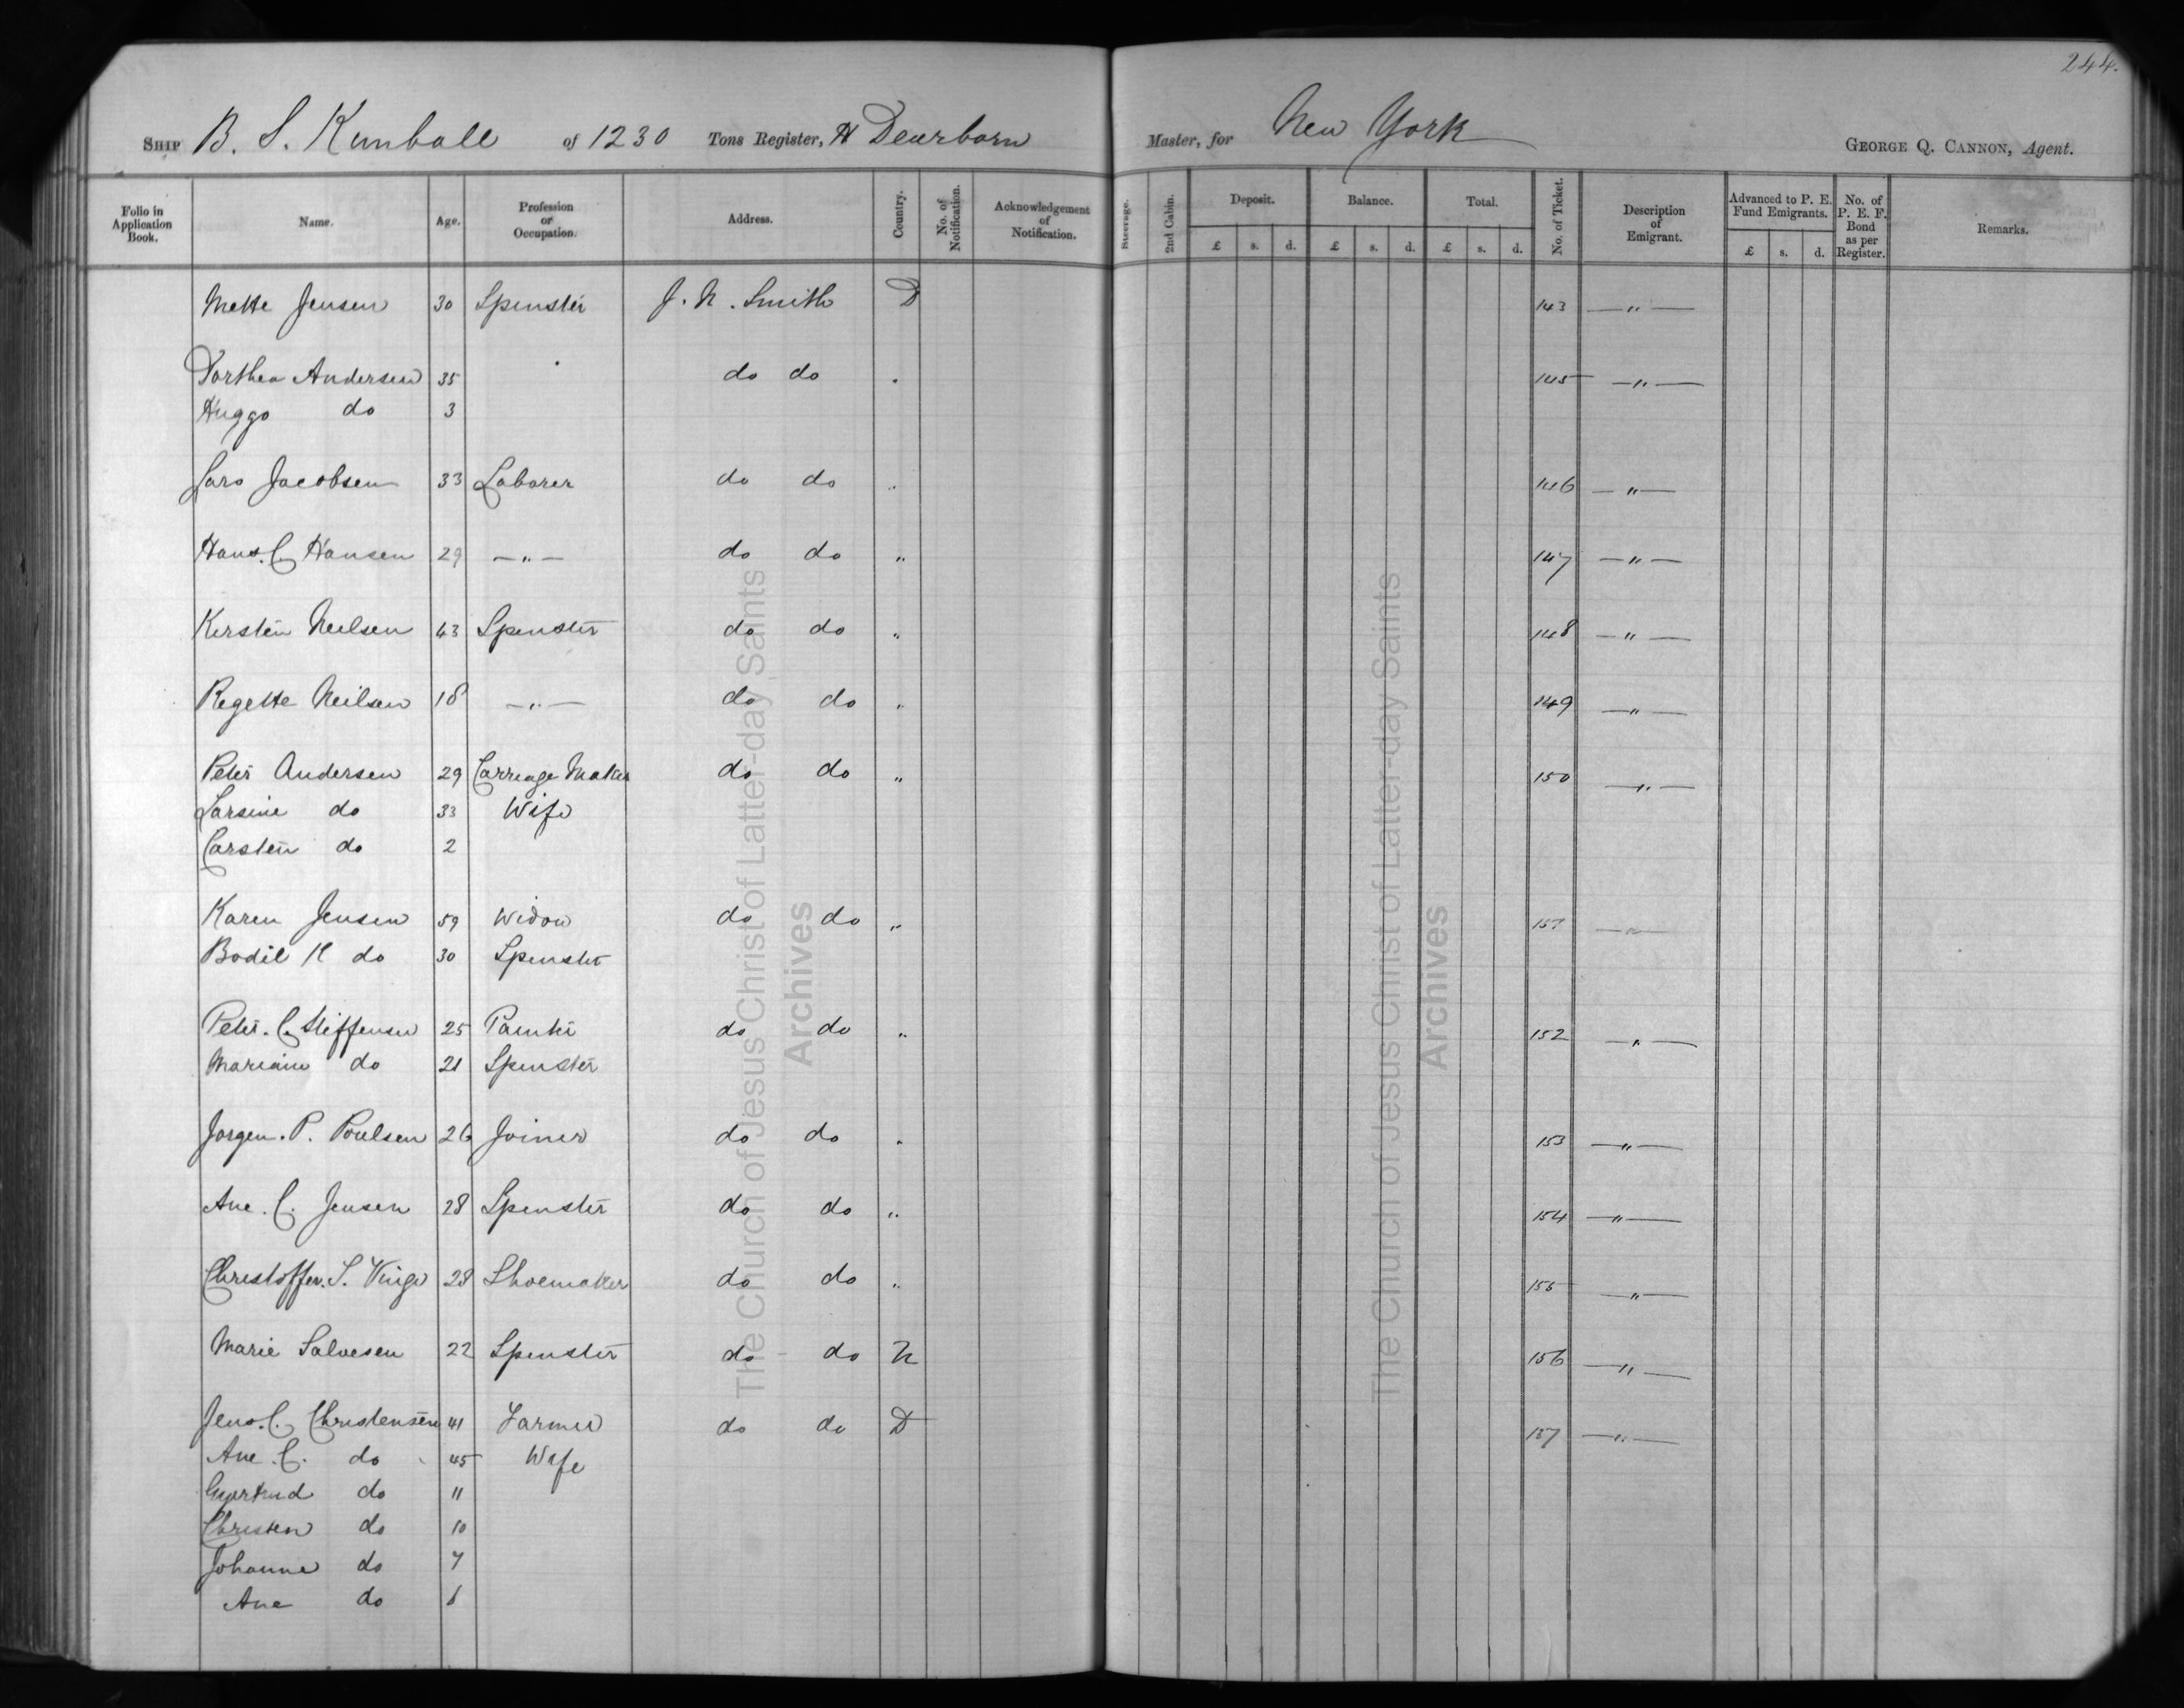 244.
SHIP B. S. Kimball of 1230 Tons Register, H Dearborn Master, for New York GEORGE Q. CANNON, Agent.
Folio in Application Book. Name. Age. Profession or Occupation. Address. Country. No. of Notification. Acknowledgement of Notification. Steerage. 2nd Cabin. Deposit. £ s. d. Balance. £ s. d. Total. £ s. d. No. of Ticket. Description of Emigrant. Advanced to P. E. Fund Emigrants. £ s. d. No. of P. E. F. Bond as per Register. Remarks.
Mette Jensen 30 Spinster J. N. Smith D 143 — " —
Dorthea Andersen 35 do do 145 — " —
Huggo do 3
Lars Jacobsen 33 Laborer do do " 146 — " —
Hans. C Hansen 29 — " — do do " 147 — " —
Kersten Neilsen 43 Spinster do do " 148 — " —
Regette Neilsen 18 — " — do do " 149 — " —
Peter Andersen 29 Carriage Maker do do " 150 — " —
Larsine do 33 Wife
Carsten do 2
Karen Jensen 59 Widow do do " 151 — " —
Bodil K do 30 Spinster
Peter. C. Steffensen 25 Painter do do " 152 — " —
Mariane do 21 Spinster
Jorgen. P. Poulsen 26 Joiner do do " 153 — " —
Ane. C. Jensen 28 Spinster do do " 154 — " —
Christoffer. S. Winge 28 Shoemaker do do " 155 — " —
Marie Salvesen 22 Spinster do do N 156 — " —
Jens. C. Christensen 41 Farmer do do D 157 — " —
Ane. C. do 45 Wife
do 11
Christen do 10
Johanne do 7
Ane do 6
The Church of Jesus Christ of Latter-day Saints
Archives
The Church of Jesus Christ of Latter-day Saints
Archives